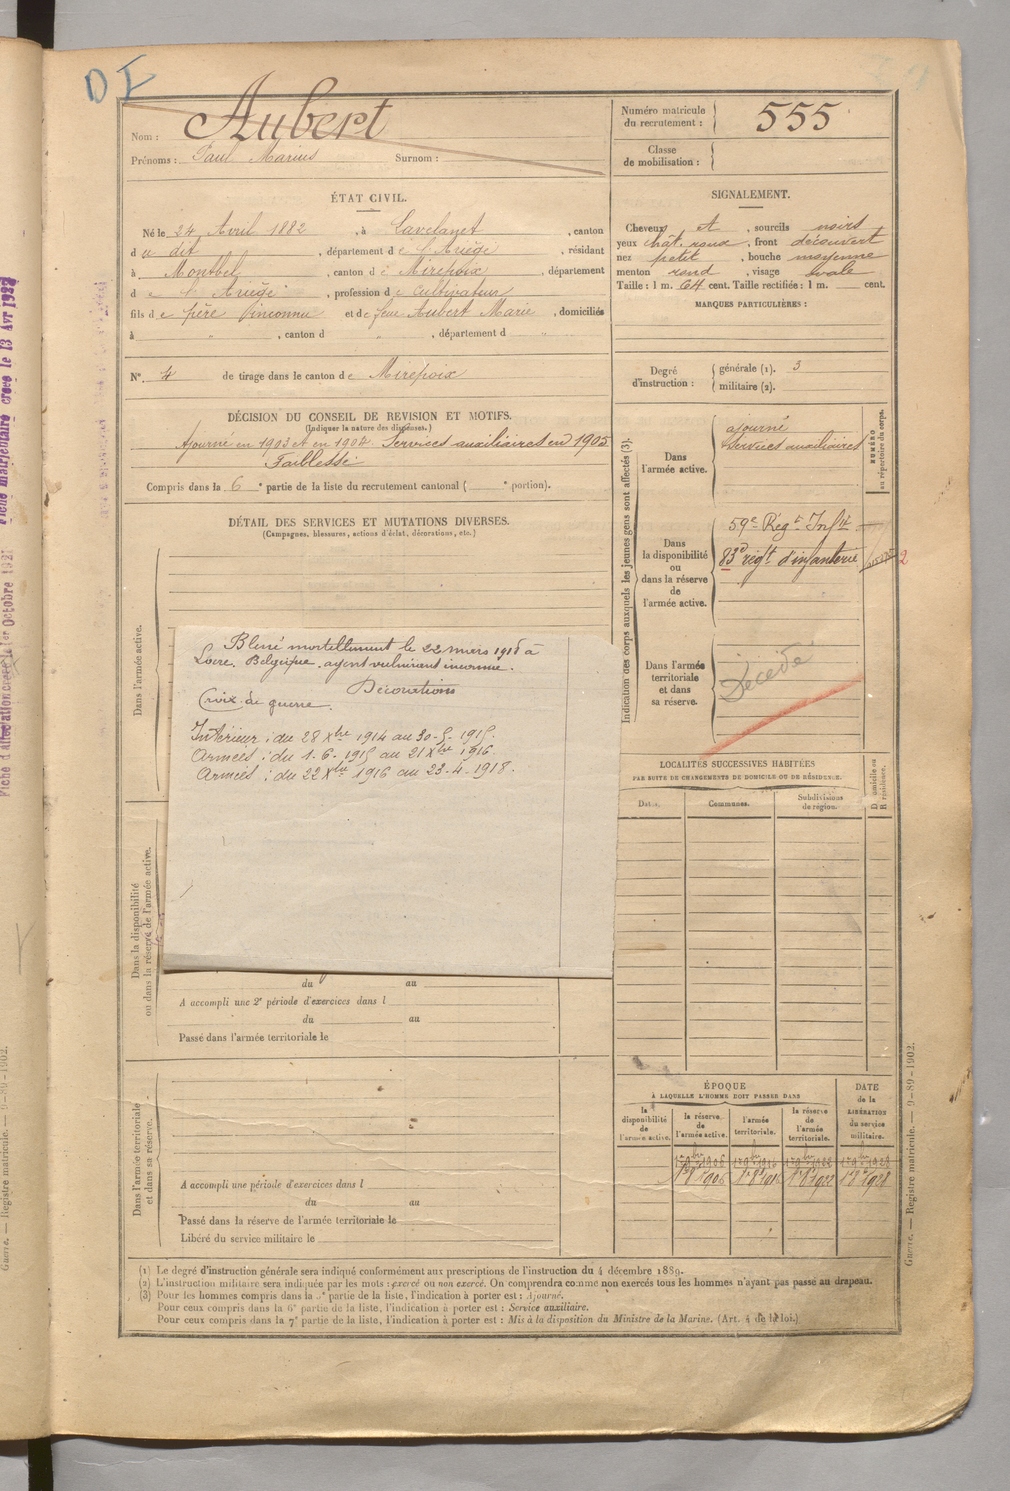 DI
Nom : Aubert
Prénoms : Paul Marius Surnom :
Numéro matricule du recrutement : 555
Classe de mobilisation :
ÉTAT CIVIL.
Né le 24 Avril 1882, à Lavelanet, canton
du dit, département de l'Ariège, résidant
à Montbel, canton de Mirepoix, département
de l'Ariège, profession de cultivateur
fils de père inconnu et de feue Aubert Marie, domiciliés
à " , canton d " , département d "
N° 4 de tirage dans le canton de Mirepoix
SIGNALEMENT.
Cheveux et, sourcils noirs
yeux chât. roux, front découvert
nez petit, bouche moyenne
menton rond, visage ovale
Taille : 1 m. 64 cent. Taille rectifiée : 1 m. cent.
MARQUES PARTICULIÈRES :
Degré d'instruction : générale (1). 3
militaire (2).
DÉCISION DU CONSEIL DE REVISION ET MOTIFS.
(Indiquer la nature des dispenses.)
Ajourné en 1903 et en 1904. Services auxiliaires en 1905
Faiblesse
Compris dans la 6e partie de la liste du recrutement cantonal ( e portion).
DÉTAIL DES SERVICES ET MUTATIONS DIVERSES.
(Campagnes, blessures, actions d'éclat, décorations, etc.)
Dans l'armée active.
Blessé mortellement le 22 mars 1918 à
Loire, Belgique, agent vulnérant inconnu.
Décorations
Croix de guerre.
Intérieur : du 28 Xbre 1914 au 30-5-1915.
Armées : du 1-6-1915 au 21 Xbre 1916
Armées : du 22 Xbre 1916 au 23-4-1918.
Dans la disponibilité
ou dans la réserve de l'armée active.
du au
A accompli une 2e période d'exercices dans l
du au
Passé dans l'armée territoriale le
Dans l'armée territoriale
et dans sa réserve.
A accompli une période d'exercices dans l
du au
Passé dans la réserve de l'armée territoriale le
Libéré du service militaire le
Indication des corps auxquels les jeunes gens sont affectés (3).
NUMÉRO
au répertoire du corps.
Dans l'armée active.
ajourné
Services auxiliaires
Dans la disponibilité ou dans la réserve de l'armée active.
59e Régt Infie
83e régt d'infanterie
2
Dans l'armée territoriale et dans sa réserve.
Décédé
LOCALITÉS SUCCESSIVES HABITÉES
PAR SUITE DE CHANGEMENTS DE DOMICILE OU DE RÉSIDENCE.
Dates. Communes. Subdivisions de région. Domicile ou Résidence.
ÉPOQUE
À LAQUELLE L'HOMME DOIT PASSER DANS
DATE de la LIBÉRATION du service militaire.
la disponibilité de l'armée active. la réserve de l'armée active. l'armée territoriale. la réserve de l'armée territoriale.
(1) Le degré d'instruction générale sera indiqué conformément aux prescriptions de l'instruction du 4 décembre 1889.
(2) L'instruction militaire sera indiquée par les mots : exercé ou non exercé. On comprendra comme non exercés tous les hommes n'ayant pas passé au drapeau.
(3) Pour les hommes compris dans la 5e partie de la liste, l'indication à porter est : Ajourné.
Pour ceux compris dans la 6e partie de la liste, l'indication à porter est : Service auxiliaire.
Pour ceux compris dans la 7e partie de la liste, l'indication à porter est : Mis à la disposition du Ministre de la Marine. (Art. 4 de la loi.)
Guerre. — Registre matricule. — 9-89-1902.
Guerre. — Registre matricule. — 9-89-1902.